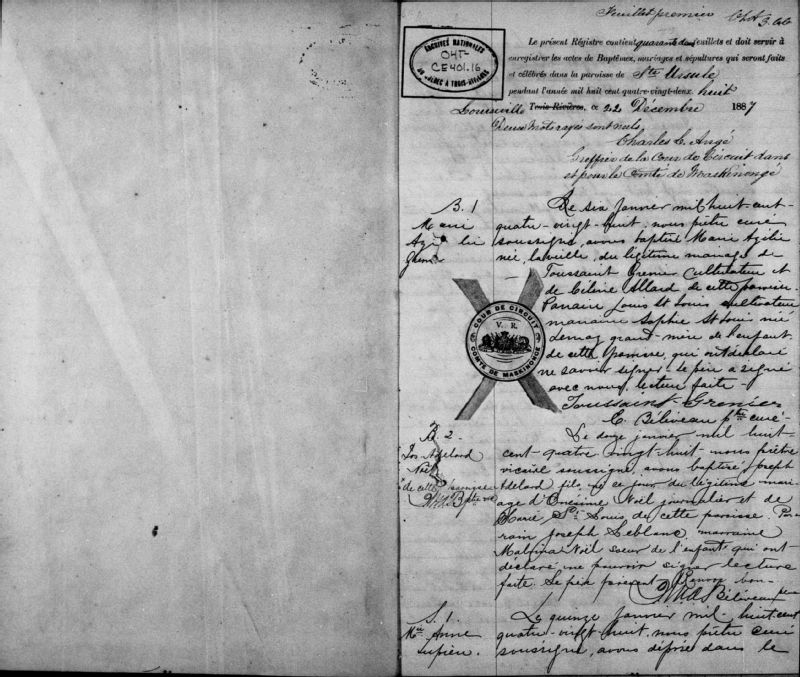 Feuillet premier
Le présent Régistre contient quarante feuillets et doit servir à
enregistrer les actes de Baptêmes, mariages et sépultures qui seront faits
et célébrés dans la paroisse de Ste Ursule
pendant l'année mil huit cent quatre-vingt-deux. huit
Louiseville Trois-Rivières, ce 22 Décembre 1887
Deux mots rayés sont nuls.
Charles L. Angé
Greffier de la Cour de Circuit dans
et pour le Comté de Maskinongé
ARCHIVES NATIONALES
CE401.16
DU QUÉBEC À TROIS-RIVIÈRES
B. 1
Marie
Azilie
Le six janvier mil huit cent
quatre-vingt-huit, nous prêtre curé
soussigné, avons baptisé Marie Azilie
née, la veille, du légitime mariage de
Toussaint Grenier cultivateur et
de Céline Allard de cette paroisse.
Parrain Louis St Louis cultivateur
marraine Sophie St Louis née
Lemay grand-mère de l'enfant
de cette paroisse, qui ont déclaré
ne savoir signer. Le père a signé
avec nous. Lecture faite -
Toussaint Grenier
E. Béliveau ptre curé -
COUR DE CIRCUIT
V. R.
COMTÉ DE MASKINONGÉ
B. 2.
Jos. Adelard
Noël
de cette paroisse
Le douze janvier mil huit-
cent-quatre vingt-huit- nous prêtre
vicaire soussigné, avons baptisé Joseph
Adelard fils né ce jour du légitime mari-
age d'Onésime Noël journalier et de
Marie St. Louis de cette paroisse. Par-
rain Joseph Leblanc, marraine
Malvina Noël soeur de l'enfant qui ont
déclaré ne pouvoir signer lecture
faite. Le père présent
Béliveau ptre
S. 1.
Mie Anne
Lupien.
Le quinze janvier mil huit-cent
quatre-vingt huit, nous prêtre curé
soussigné, avons déposé dans le